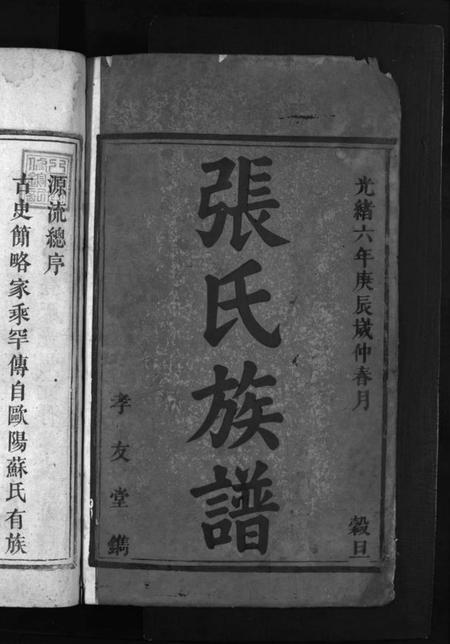 光緒六年庚辰歲仲春月 穀旦
張氏族譜
孝友堂鐫
源流總序
古史簡略家乘罕傳自歐陽蘇氏有族